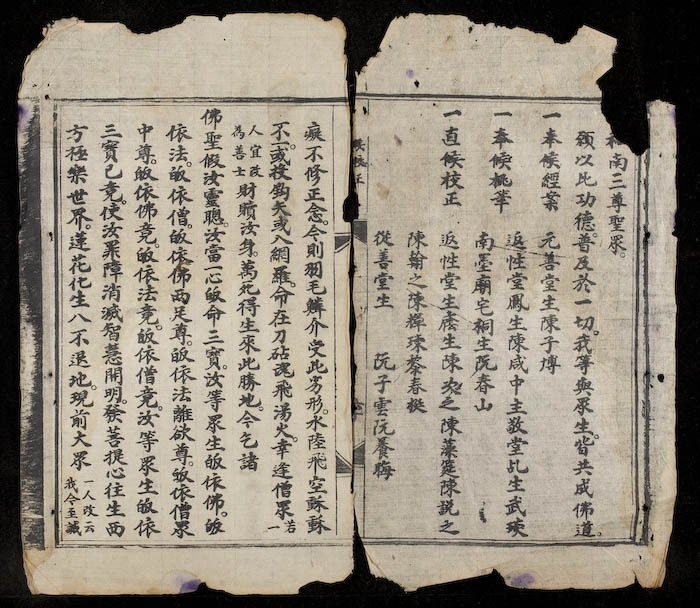 和南三尊聖眾。
願以此功德。普及於一切。我等與眾生。皆共成佛道。
一奉候經案 元善堂生陳子博
返性堂鳳生陳咸中主敬堂乩生武瑛
一奉候桃筆 南墨廟宅桐生阮春山
一直候校正 返性堂生陳之陳藻筵陳說之
陳翰之陳輝珠黎春梃
從善堂生 阮子雲阮養晦
候校正
癡不修正念。今則羽毛鱗介受此劣形。水陸飛空蘇蘇
不一。或投鈎矢或入網羅。命在刀砧魂飛湯火。幸逢僧眾。若一
人宜改為善士財贖汝身。萬死得生來此勝地。今乞諸
佛聖假汝靈聰。汝當一心皈命三寶。汝等眾生皈依佛。皈
依法。皈依僧。皈依佛兩足尊。皈依法離欲尊。皈依僧眾
中尊。皈依佛竟。皈依法竟。皈依僧竟。汝等眾生皈依
三寶已竟。使汝罪障消滅智慧開明。發菩提心往生西
方極樂世界。蓮花化生入不退地。現前大眾一人改云我今至誠